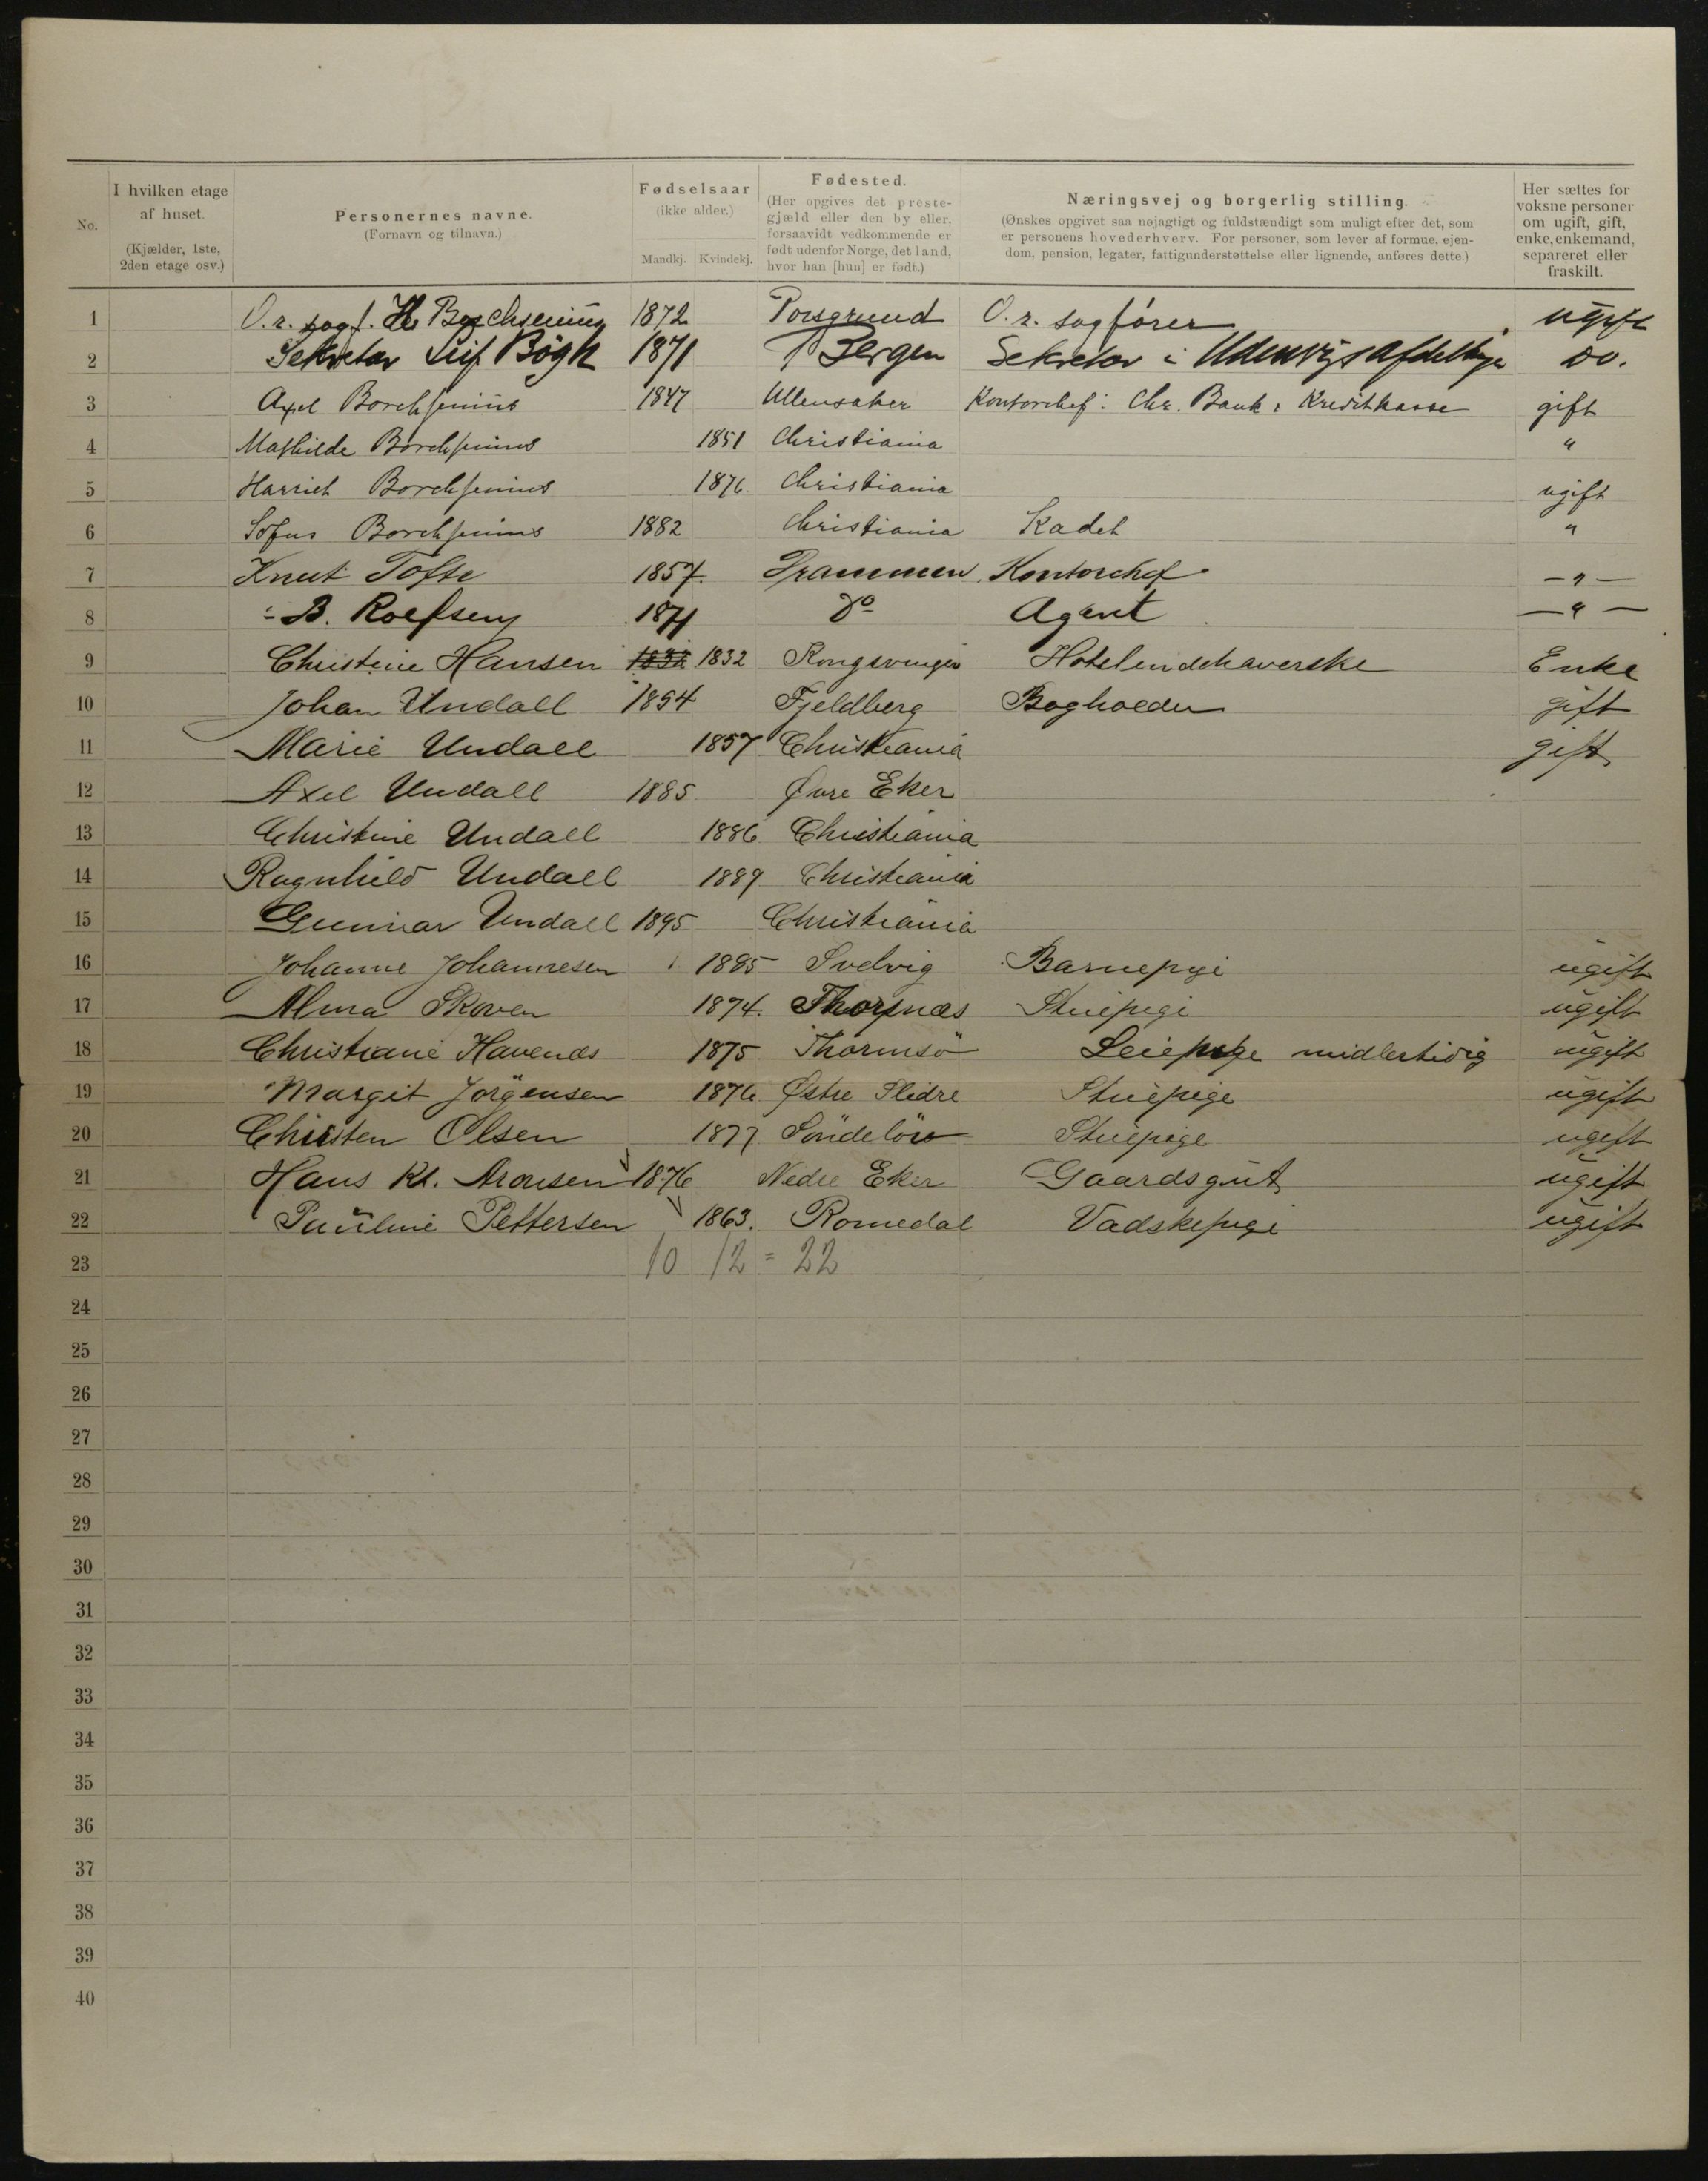 No.
I hvilken etage af huset. (Kjælder, 1ste, 2den etage osv.)
Personernes navne. (Fornavn og tilnavn.)
Fødselsaar (ikke alder.) Mandkj. Kvindekj.
Fødested. (Her opgives det prestegjæld eller den by eller, forsaavidt vedkommende er født udenfor Norge, det land, hvor han [hun] er født.)
Næringsvej og borgerlig stilling. (Ønskes opgivet saa nøjagtigt og fuldstændigt som muligt efter det, som er personens hovederhverv. For personer, som lever af formue, ejendom, pension, legater, fattigunderstøttelse eller lignende, anføres dette.)
Her sættes for voksne personer om ugift, gift, enke, enkemand, separeret eller fraskilt.
1 O.r. sagf. Borchsenius 1872 Porsgrund O.r. sagfører ugift
2 Sekretær Leif Bögh 1871 Bergen Sekretær i Udenrigsafdelingen do.
3 Axel Borchsenius 1847 Ullensaker Kontorchef i Chr. Bank & Kreditkasse gift
4 Mathilde Borchsenius 1851 Christiania "
5 Harriet Borchsenius 1876 Christiania ugift
6 Sofus Borchsenius 1882 Christiania Kadet "
7 Knut Tofte 1857. Drammen Kontorchef — " —
8 B. Roefsen 1871 do Agent — " —
9 Christine Hansen 1832 Kongsvinger Hotelindehaverske Enke
10 Johan Undall 1854 Fjeldberg Bogholder gift
11 Marie Undall 1857 Christiania gift
12 Axel Undall 1885 Øvre Eker
13 Christine Undall 1886 Christiania
14 Ragnhild Undall 1889 Christiania
15 Gunnar Undall 1895 Christiania
16 Johanne Johannesen 1885 Svelvig Barnepige ugift
17 Alma Skoven 1874. Thorsnæs Stuepige ugift
18 Christiane Havends 1875 Thormsö Leiepige midlertidig ugift
19 Margit Jörgensen 1876 Østre Slidre Stuepige ugift
20 Christen Olsen 1877 Söndelöv Stuepige ugift
21 Hans Kr. Aronsen 1876 Nedre Eker Gaardsgut ugift
22 Pauline Pettersen 1863. Romedal Vadskepige ugift
23 10 12 = 22
24
25
26
27
28
29
30
31
32
33
34
35
36
37
38
39
40